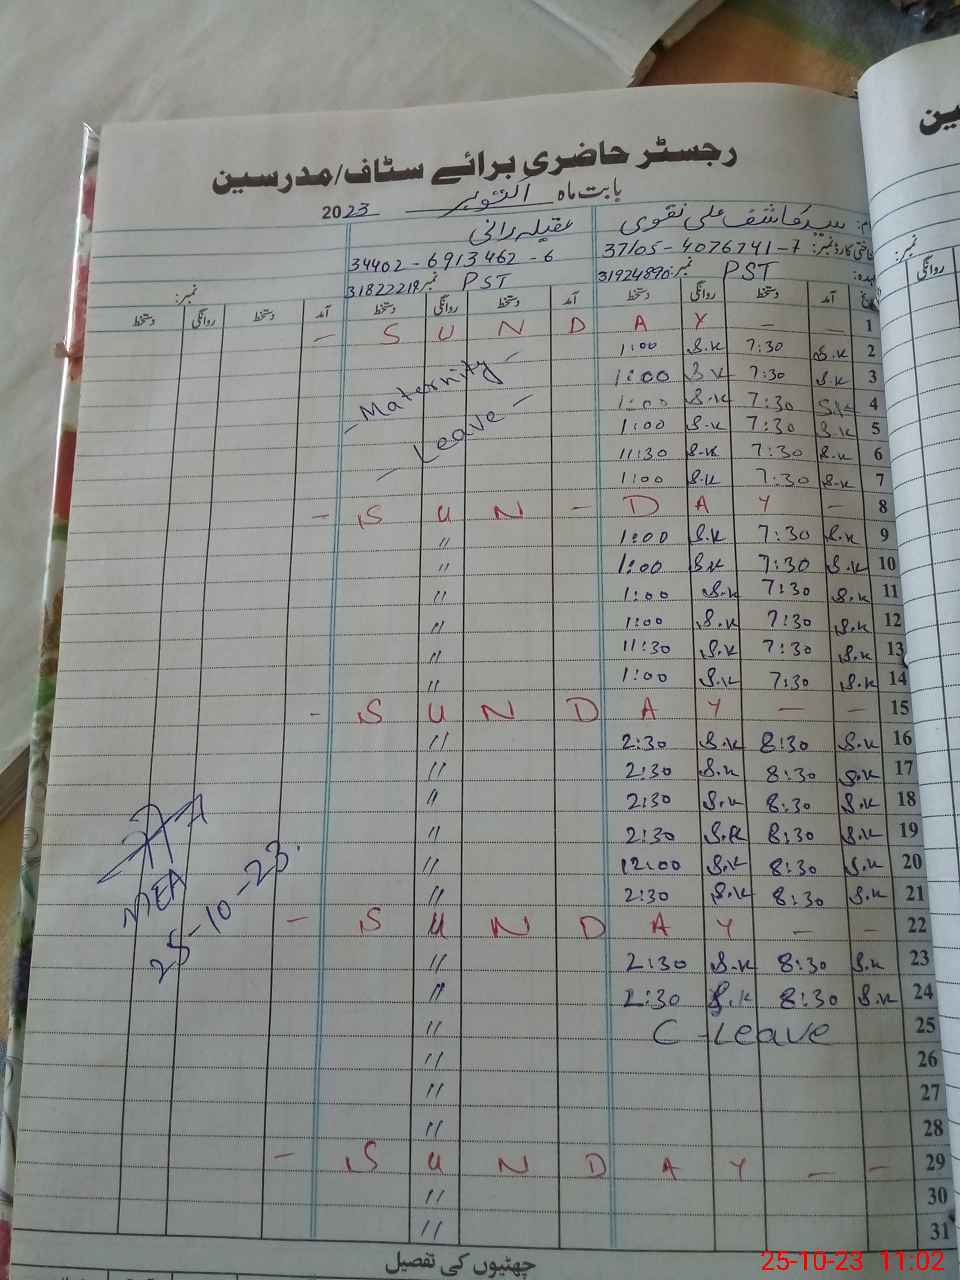 رجسٹر حاضری برائے سٹاف/مدرسین
بابت ماہ اکتوبر 2023
نام: سید کاشف علی نقوی عقیلہ رانی
شناختی کارڈ نمبر: 37105-4076741-7 34402-6913462-6
عہدہ: PST نمبر: 31924890 PST نمبر 31822219 نمبر:
آمد دستخط روانگی دستخط آمد دستخط روانگی دستخط
1 — — S U N D A Y —
2 S.K 7:30 S.K 1:00 - Maternity -
3 S.K 7:30 S.K 1:00
4 S.K 7:30 S.K 1:00 - Leave -
5 S.K 7:30 S.K 1:00
6 S.K 7:30 S.K 11:30
7 S.K 7:30 S.K 1:00
8 — S U N - D A Y —
9 S.K 7:30 S.K 1:00 "
10 S.K 7:30 S.K 1:00 "
11 S.K 7:30 S.K 1:00 "
12 S.K 7:30 S.K 1:00 "
13 S.K 7:30 S.K 11:30 "
14 S.K 7:30 S.K 1:00 "
15 — — S U N D A Y -
16 S.K 8:30 S.K 2:30 "
17 S.K 8:30 S.K 2:30 "
18 S.K 8:30 S.K 2:30 "
19 S.K 8:30 S.K 2:30 "
20 S.K 8:30 S.K 12:00 "
21 S.K 8:30 S.K 2:30 "
22 — — S U N D A Y —
23 S.K 8:30 S.K 2:30 "
24 S.K 8:30 S.K 2:30 "
25 C-Leave "
26 "
27 "
28 "
29 — — S U N D A Y —
30 "
31 "
MEA
25-10-23.
چھٹیوں کی تفصیل
روانگی
نمبر:
25-10-23 11:02